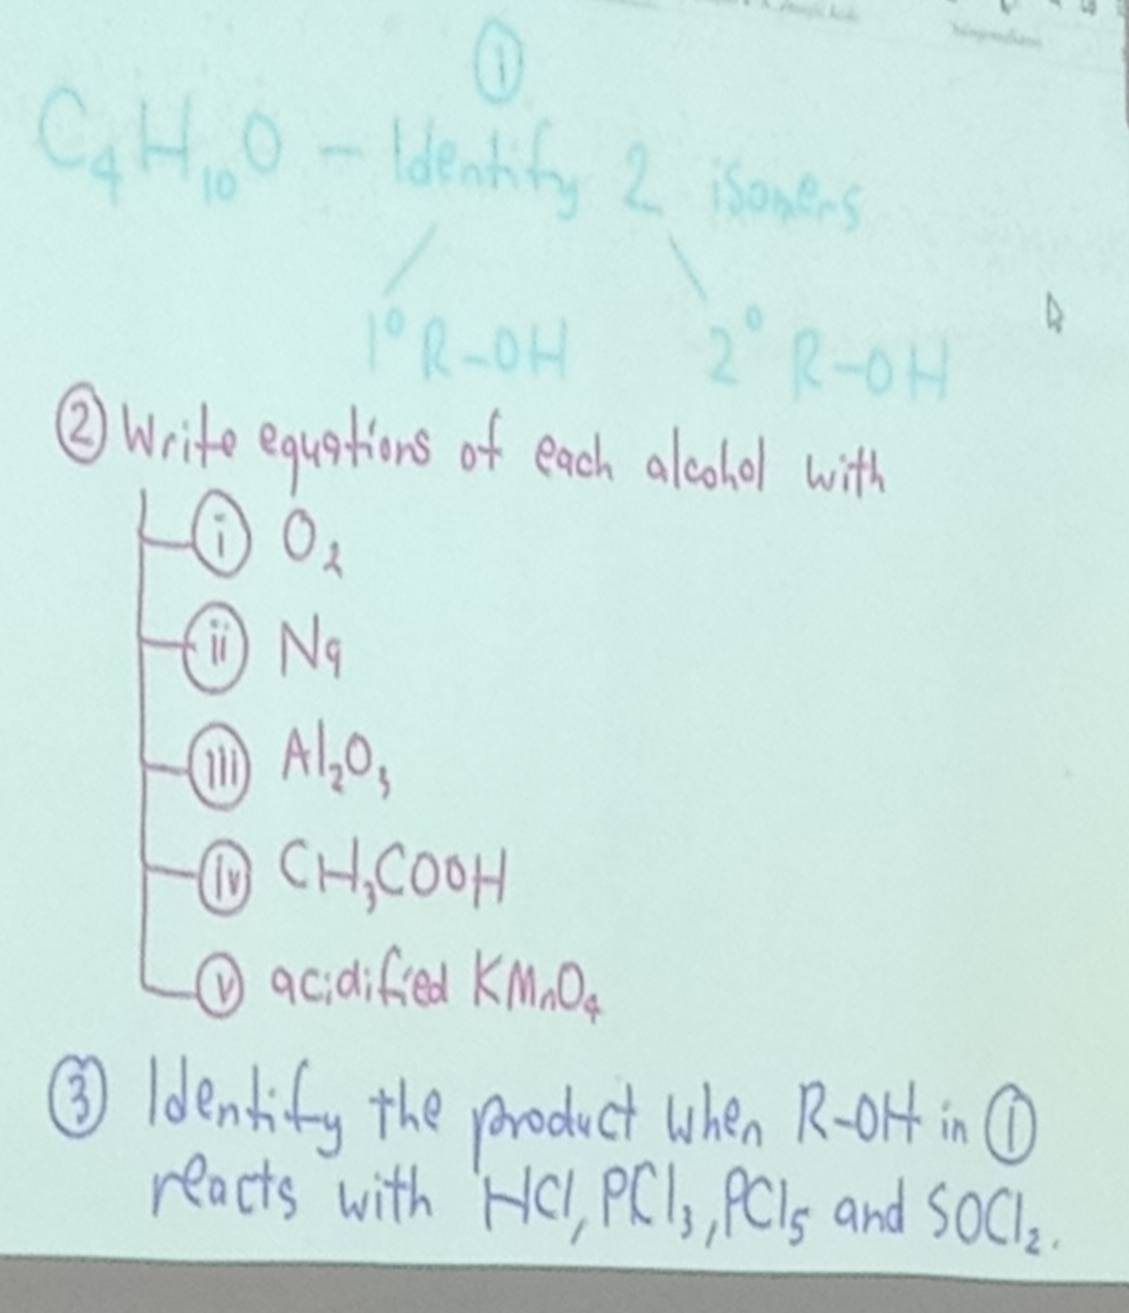 ①
C₄H₁₀O – Identify 2 isomers
1° R-OH 2° R-OH
② Write equations of each alcohol with
ⓘ O₂
ⓘⓘ Na
ⓘⓘⓘ Al₂O₃
ⓘⓥ CH₃COOH
ⓥ acidified KMnO₄
③ Identify the product when R-OH in ①
reacts with HCl, PCl₃, PCl₅ and SOCl₂.